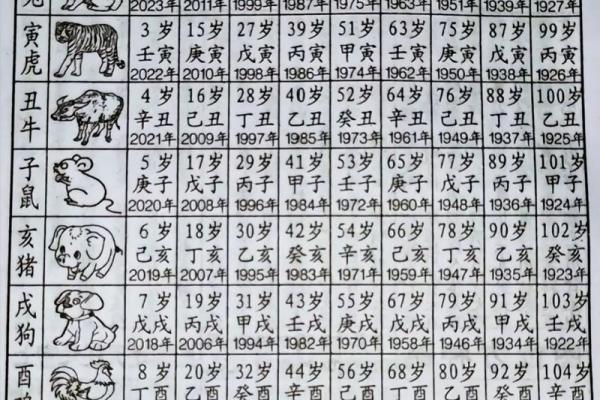 2023年 2011年 1999年 1987年 1975年 1963年 1951年 1939年 1927年
寅 3岁 15岁 27岁 39岁 51岁 63岁 75岁 87岁 99岁
虎 壬寅 庚寅 戊寅 丙寅 甲寅 壬寅 庚寅 戊寅 丙寅
2022年 2010年 1998年 1986年 1974年 1962年 1950年 1938年 1926年
丑 4岁 16岁 28岁 40岁 52岁 64岁 76岁 88岁 100岁
牛 辛丑 己丑 丁丑 乙丑 癸丑 辛丑 己丑 丁丑 乙丑
2021年 2009年 1997年 1985年 1973年 1961年 1949年 1937年 1925年
子 5岁 17岁 29岁 41岁 53岁 65岁 77岁 89岁 101岁
鼠 庚子 戊子 丙子 甲子 壬子 庚子 戊子 丙子 甲子
2020年 2008年 1996年 1984年 1972年 1960年 1948年 1936年 1924年
亥 6岁 18岁 30岁 42岁 54岁 66岁 78岁 90岁 102岁
猪 己亥 丁亥 乙亥 癸亥 辛亥 己亥 丁亥 乙亥 癸亥
2019年 2007年 1995年 1983年 1971年 1959年 1947年 1935年 1923年
戌 7岁 19岁 31岁 43岁 55岁 67岁 79岁 91岁 103岁
狗 戊戌 丙戌 甲戌 壬戌 庚戌 戊戌 丙戌 甲戌 壬戌
2018年 2006年 1994年 1982年 1970年 1958年 1946年 1934年 1922年
酉 8岁 20岁 32岁 44岁 56岁 68岁 80岁 92岁 104岁
丁酉 乙酉 癸酉 辛酉 己酉 丁酉 乙酉 癸酉 辛酉